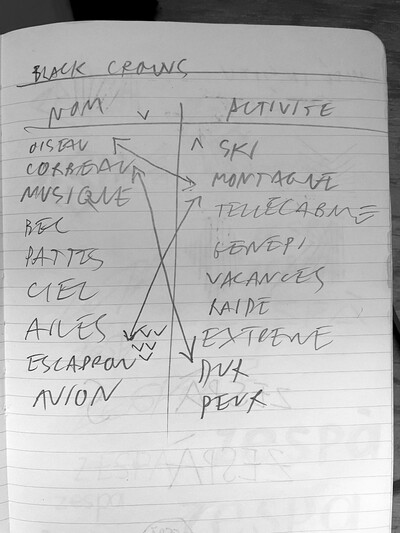 BLACK CROWS
NOM
OISEAU
CORBEAU
MUSIQUE
BEC
PATTES
CIEL
AILES
ESCADRON
AVION
ACTIVITE
SKI
MONTAGNE
TELLECABINE
GENEPI
VACANCES
RAIDE
EXTREME
DUR
PEUR